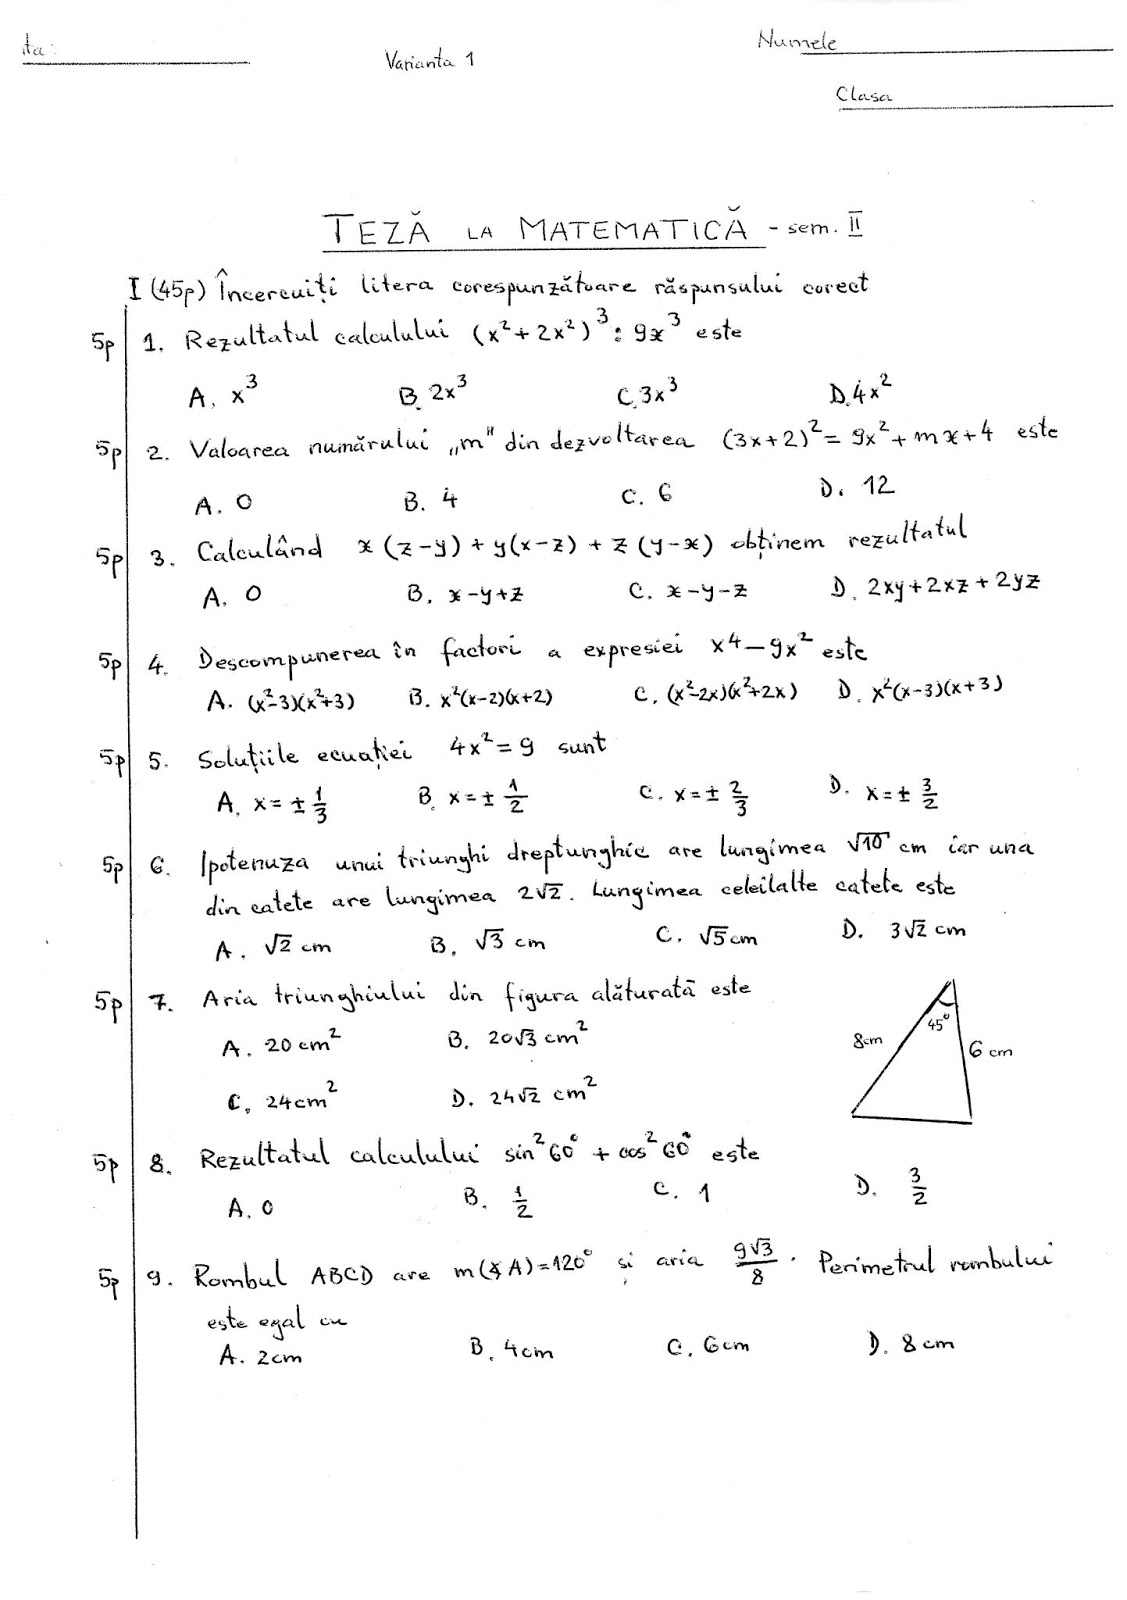 ta:
Varianta 1
Numele
Clasa
TEZĂ LA MATEMATICĂ - sem. II
I (45p) Încercuiți litera corespunzătoare răspunsului corect
5p 1. Rezultatul calculului (x²+2x²)³ : 9x³ este
A. x³ B. 2x³ C. 3x³ D. 4x²
5p 2. Valoarea numărului „m" din dezvoltarea (3x+2)² = 9x² + mx + 4 este
A. 0 B. 4 C. 6 D. 12
5p 3. Calculând x(z-y) + y(x-z) + z(y-x) obținem rezultatul
A. 0 B. x-y+z C. x-y-z D. 2xy+2xz+2yz
5p 4. Descompunerea în factori a expresiei x⁴-9x² este
A. (x²-3)(x²+3) B. x²(x-2)(x+2) C. (x²-2x)(x²+2x) D. x²(x-3)(x+3)
5p 5. Soluțiile ecuației 4x² = 9 sunt
A. x = ± 1/3 B. x = ± 1/2 C. x = ± 2/3 D. x = ± 3/2
5p 6. Ipotenuza unui triunghi dreptunghic are lungimea √10 cm iar una
din catete are lungimea 2√2. Lungimea celeilalte catete este
A. √2 cm B. √3 cm C. √5 cm D. 3√2 cm
5p 7. Aria triunghiului din figura alăturată este
A. 20 cm² B. 20√3 cm²
C. 24 cm² D. 24√2 cm²
45°
8cm
6 cm
5p 8. Rezultatul calculului sin²60° + cos²60° este
A. 0 B. 1/2 C. 1 D. 3/2
5p 9. Rombul ABCD are m(∢A)=120° și aria 9√3/8. Perimetrul rombului
este egal cu
A. 2cm B. 4cm C. 6cm D. 8cm